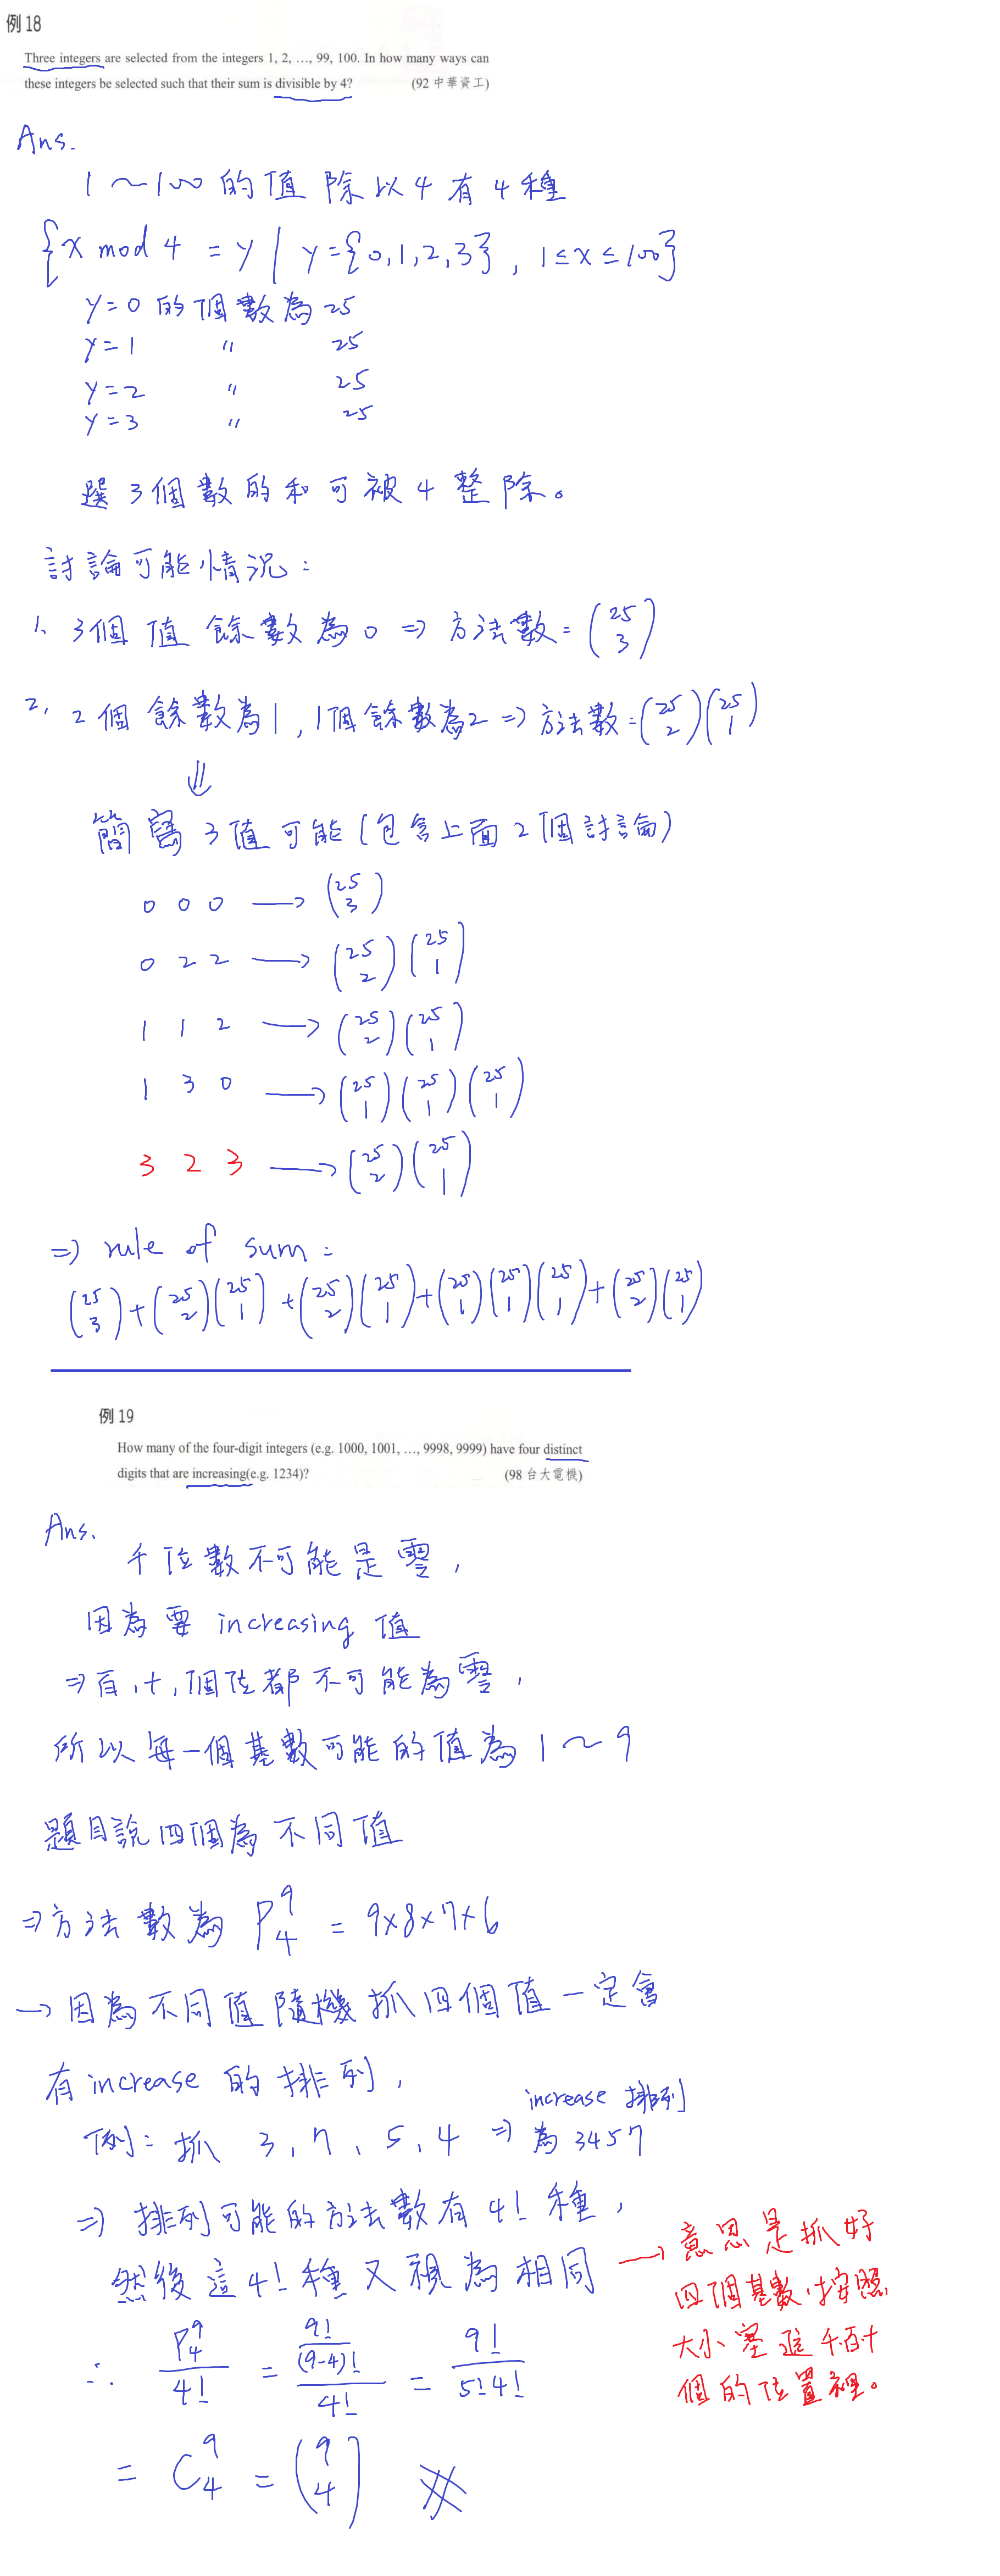 例 18
Three integers are selected from the integers 1, 2, …, 99, 100. In how many ways can
these integers be selected such that their sum is divisible by 4? (92 中華資工)
Ans.
1～100 的值 除以4有4種
{x mod 4 = y | y={0,1,2,3}, 1≤x≤100}
y=0 的個數為 25
y=1 〃 25
y=2 〃 25
y=3 〃 25
選 3個數的和可被 4 整除。
討論可能情況：
1、3個值 餘數為0 ⇒ 方法數=(25 3)
2、2個餘數為1, 1個餘數為2 ⇒ 方法數=(25 2)(25 1)
⇓
簡寫 3值可能(包含上面2個討論)
0 0 0 → (25 3)
0 2 2 → (25 2)(25 1)
1 1 2 → (25 2)(25 1)
1 3 0 → (25 1)(25 1)(25 1)
3 2 3 → (25 2)(25 1)
⇒ rule of sum:
(25 3)+(25 2)(25 1)+(25 2)(25 1)+(25 1)(25 1)(25 1)+(25 2)(25 1)
例 19
How many of the four-digit integers (e.g. 1000, 1001, …, 9998, 9999) have four distinct
digits that are increasing(e.g. 1234)? (98 台大電機)
Ans.
千位數不可能是零,
因為要 increasing 值
⇒百,十,個位都不可能為零,
所以每一個基數可能的值為 1～9
題目說四個為不同值
⇒方法數為 P⁹₄ = 9×8×7×6
→ 因為不同值隨機抓四個值一定會
有 increase 的排列,
例: 抓 3,7、5,4 ⇒ increase 排列
為 3457
⇒ 排列可能的方法數有 4! 種,
然後這4!種又視為相同 → 意思是抓好
四個基數,按照
大小塞進千百十
個的位置裡。
∴ P⁹₄/4! = (9!/(9-4)!)/4! = 9!/(5!4!)
= C⁹₄ = (9 4)